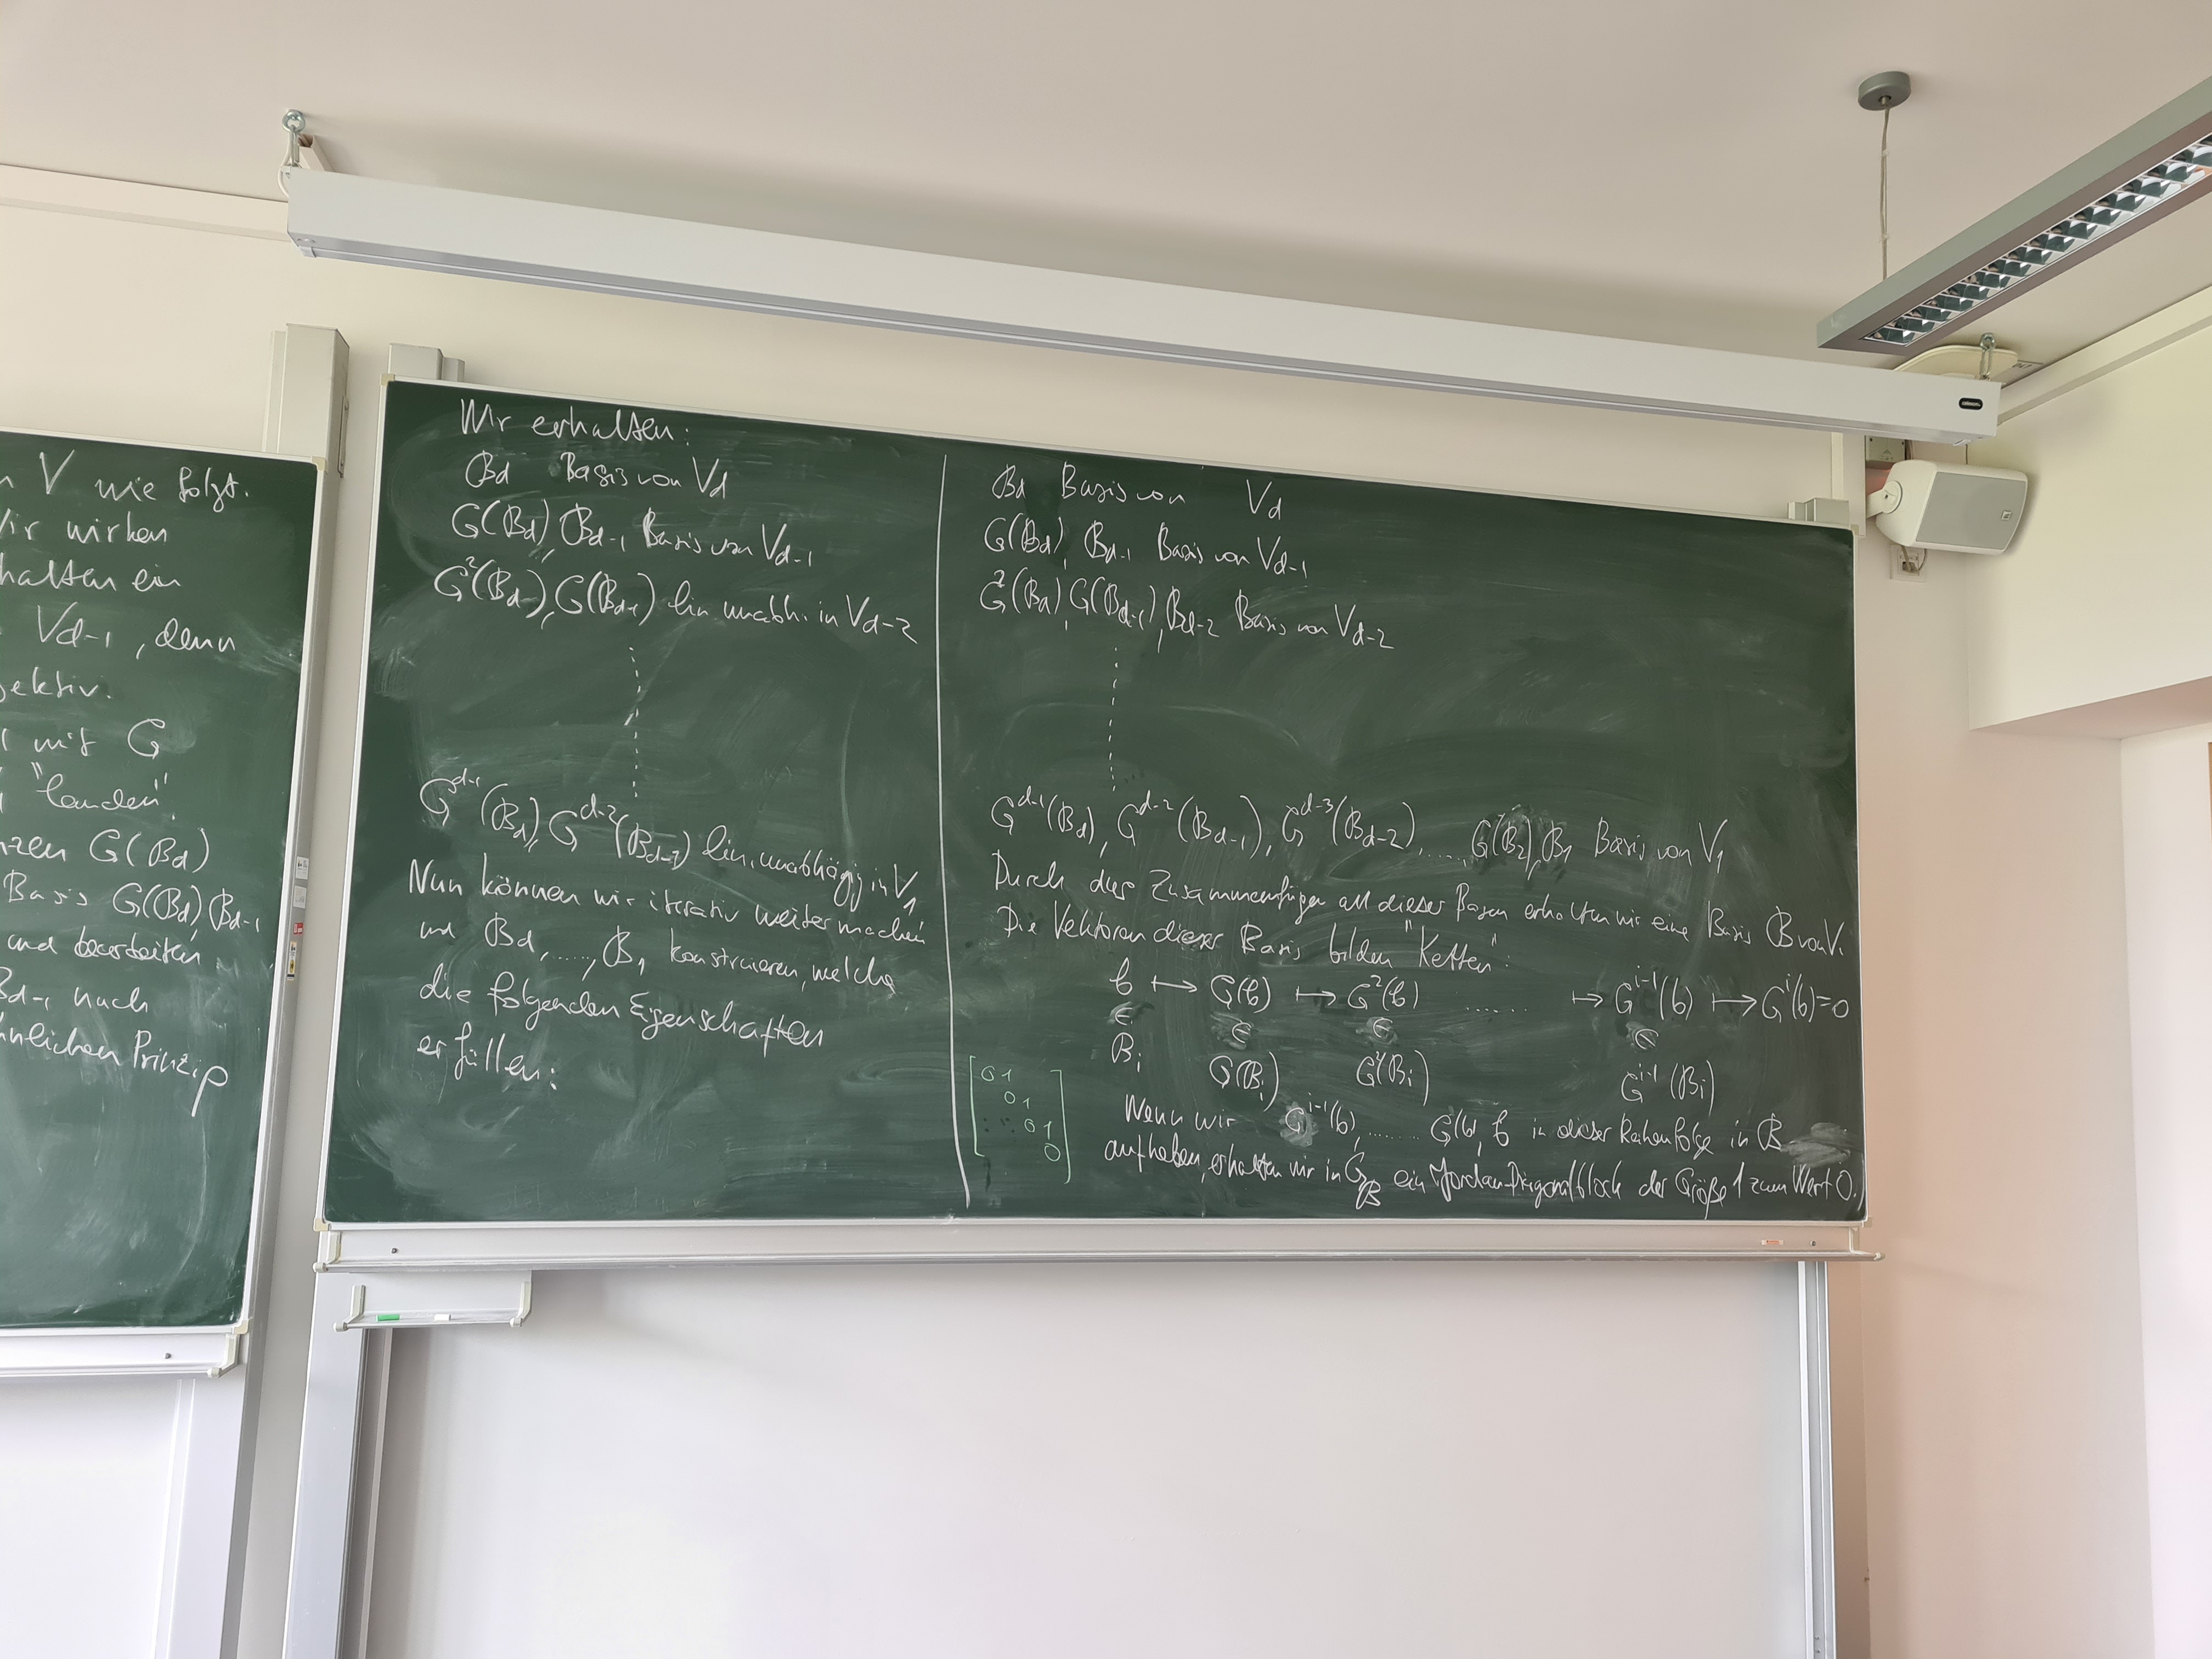 n V wie folgt.
Wir wirken
halten ein
Vd-1, denn
jektiv.
mit G
"landen".
nzen G(Bd)
Basis G(Bd), Bd-1
und bearbeiten
Bd-1 nach
hnlichen Prinzip
Wir erhalten:
Bd Basis von Vd
G(Bd), Bd-1 Basis von Vd-1
G²(Bd), G(Bd-1) lin. unabh. in Vd-2
G^d-1(Bd), G^d-2(Bd-1) lin. unabhägig in V1
Nun können wir iterativ weitermachen
und Bd, ....., B1 konstruieren, welche
die folgenden Eigenschaften
erfüllen:
Bd Basis von Vd
G(Bd), Bd-1 Basis von Vd-1
G²(Bd), G(Bd-1), Bd-2 Basis von Vd-2
G^d-1(Bd), G^d-2(Bd-1), G^d-3(Bd-2), ....., G(B2), B1 Basis von V1
Durch das Zusammenfügen all dieser Basen erhalten wir eine Basis B von V.
Die Vektoren dieser Basis bilden "Ketten":
b ↦ G(b) ↦ G²(b) ...... ↦ G^i-1(b) ↦ G^i(b)=0
∈ ∈ ∈ ∈
Bi G(Bi) G²(Bi) G^i-1(Bi)
Wenn wir G^i-1(b), ....... G(b), b in dieser Reihenfolge in B
aufheben, erhalten wir in G_B ein Jordan-Diagonalblock der Größe 1 zum Wert 0.
0 1
0 1
0 1
0